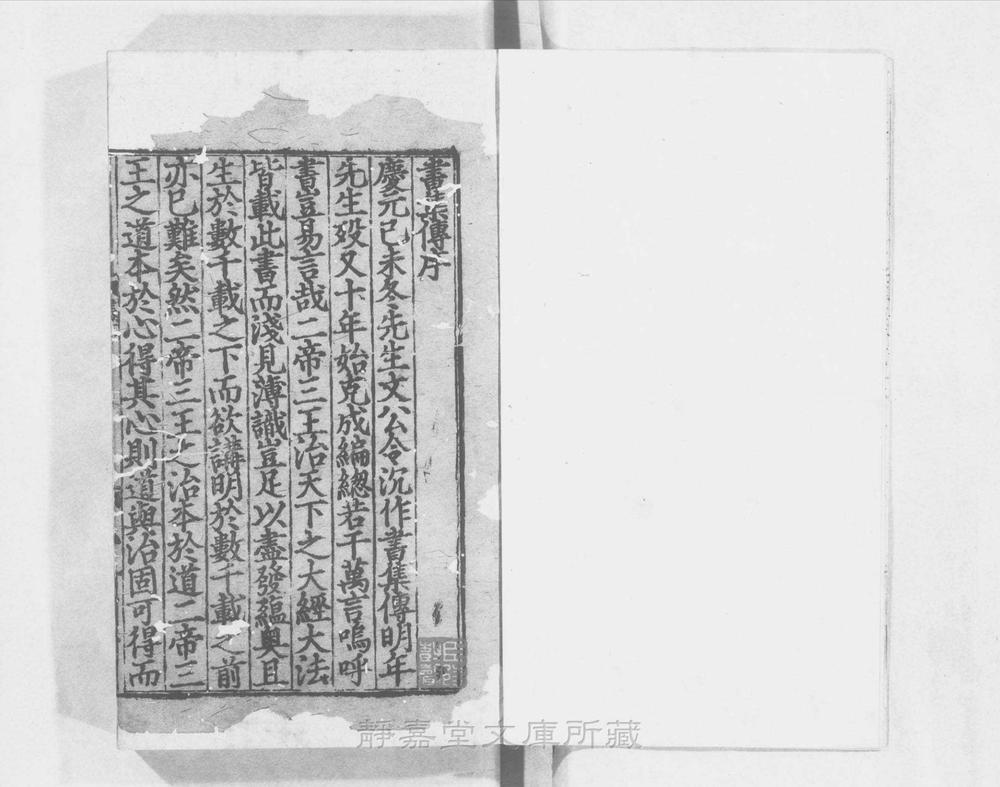 書集傳序
慶元己未冬先生文公令沉作書集傳明年
先生殁又十年始克成編緫若干萬言嗚呼
書豈易言哉二帝三王治天下之大經大法
皆載此書而淺見薄識豈足以盡發蘊奥且
生於數千載之下而欲講明於數千載之前
亦已難矣然二帝三王之治本於道二帝三
王之道本於心得其心則道與治固可得而
靜嘉堂文庫所藏